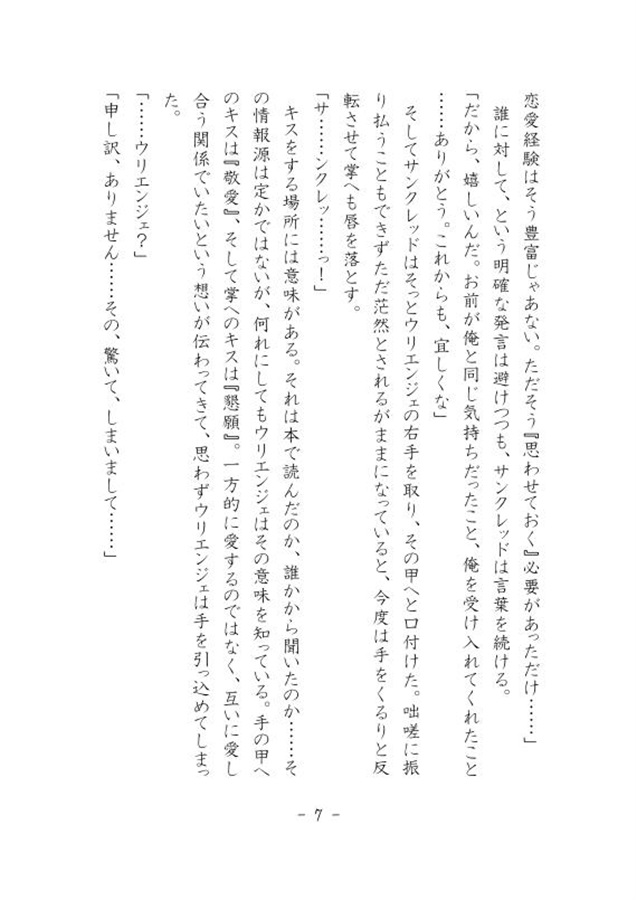 恋愛経験はそう豊富じゃあない。ただそう『思わせておく』必要があっただけ……」
　誰に対して、という明確な発言は避けつつも、サンクレッドは言葉を続ける。
「だから、嬉しいんだ。お前が俺と同じ気持ちだったこと、俺を受け入れてくれたこと
……ありがとう。これからも、宜しくな」
　そしてサンクレッドはそっとウリエンジェの右手を取り、その甲へと口付けた。咄嗟に振
り払うこともできずただ茫然とされるがままになっていると、今度は手をくるりと反
転させて掌へも唇を落とす。
「サ……ンクレッ……っ！」
　キスをする場所には意味がある。それは本で読んだのか、誰かから聞いたのか……そ
の情報源は定かではないが、何れにしてもウリエンジェはその意味を知っている。手の甲へ
のキスは『敬愛』、そして掌へのキスは『懇願』。一方的に愛するのではなく、互いに愛し
合う関係でいたいという想いが伝わってきて、思わずウリエンジェは手を引っ込めてしまっ
た。
「……ウリエンジェ？」
「申し訳、ありません……その、驚いて、しまいまして……」
- 7 -